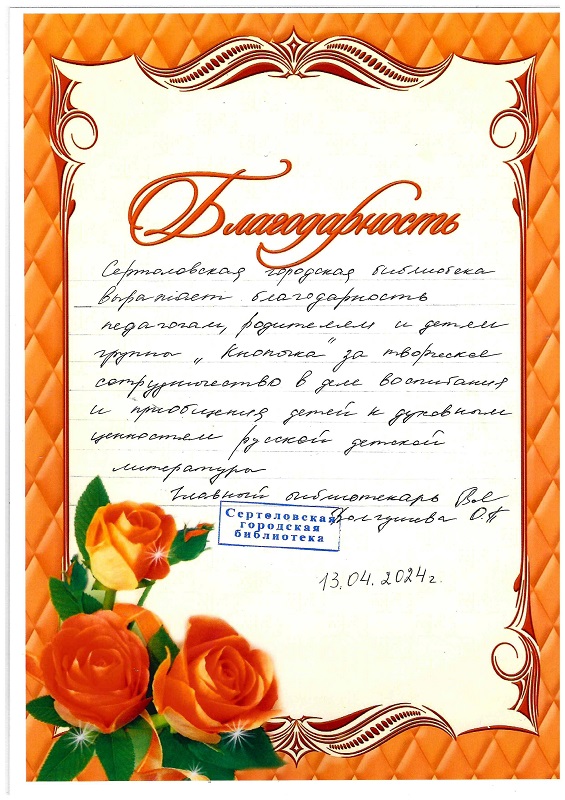 Благодарность
Сертоловская городская библиотека
выражает благодарность
педагогам, родителям и детям
группы „Кнопочка" за творческое
сотрудничество в деле воспитания
и приобщения детей к духовным
ценностям русской детской
литературы
Главный библиотекарь
О.П
Сертоловская
городская
библиотека
13.04.2024г.